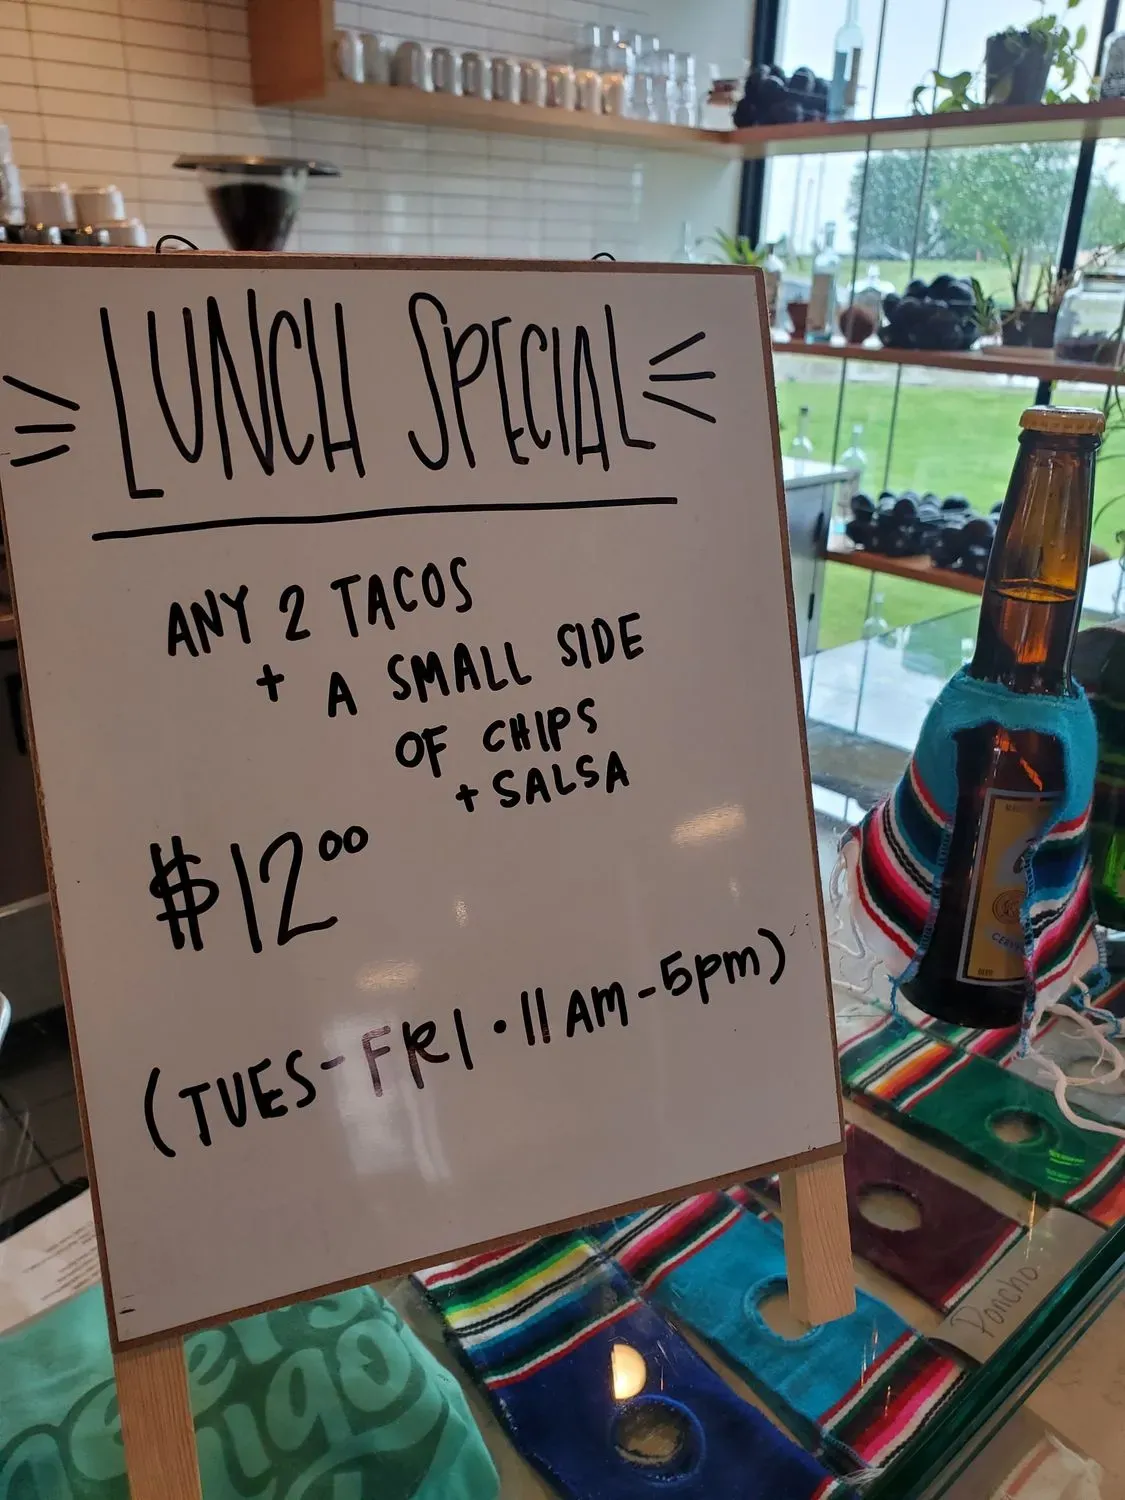 LUNCH SPECIAL
ANY 2 TACOS
+ A SMALL SIDE
OF CHIPS
+ SALSA
$12.00
(TUES-FRI • 11AM-5pm)
Poncho